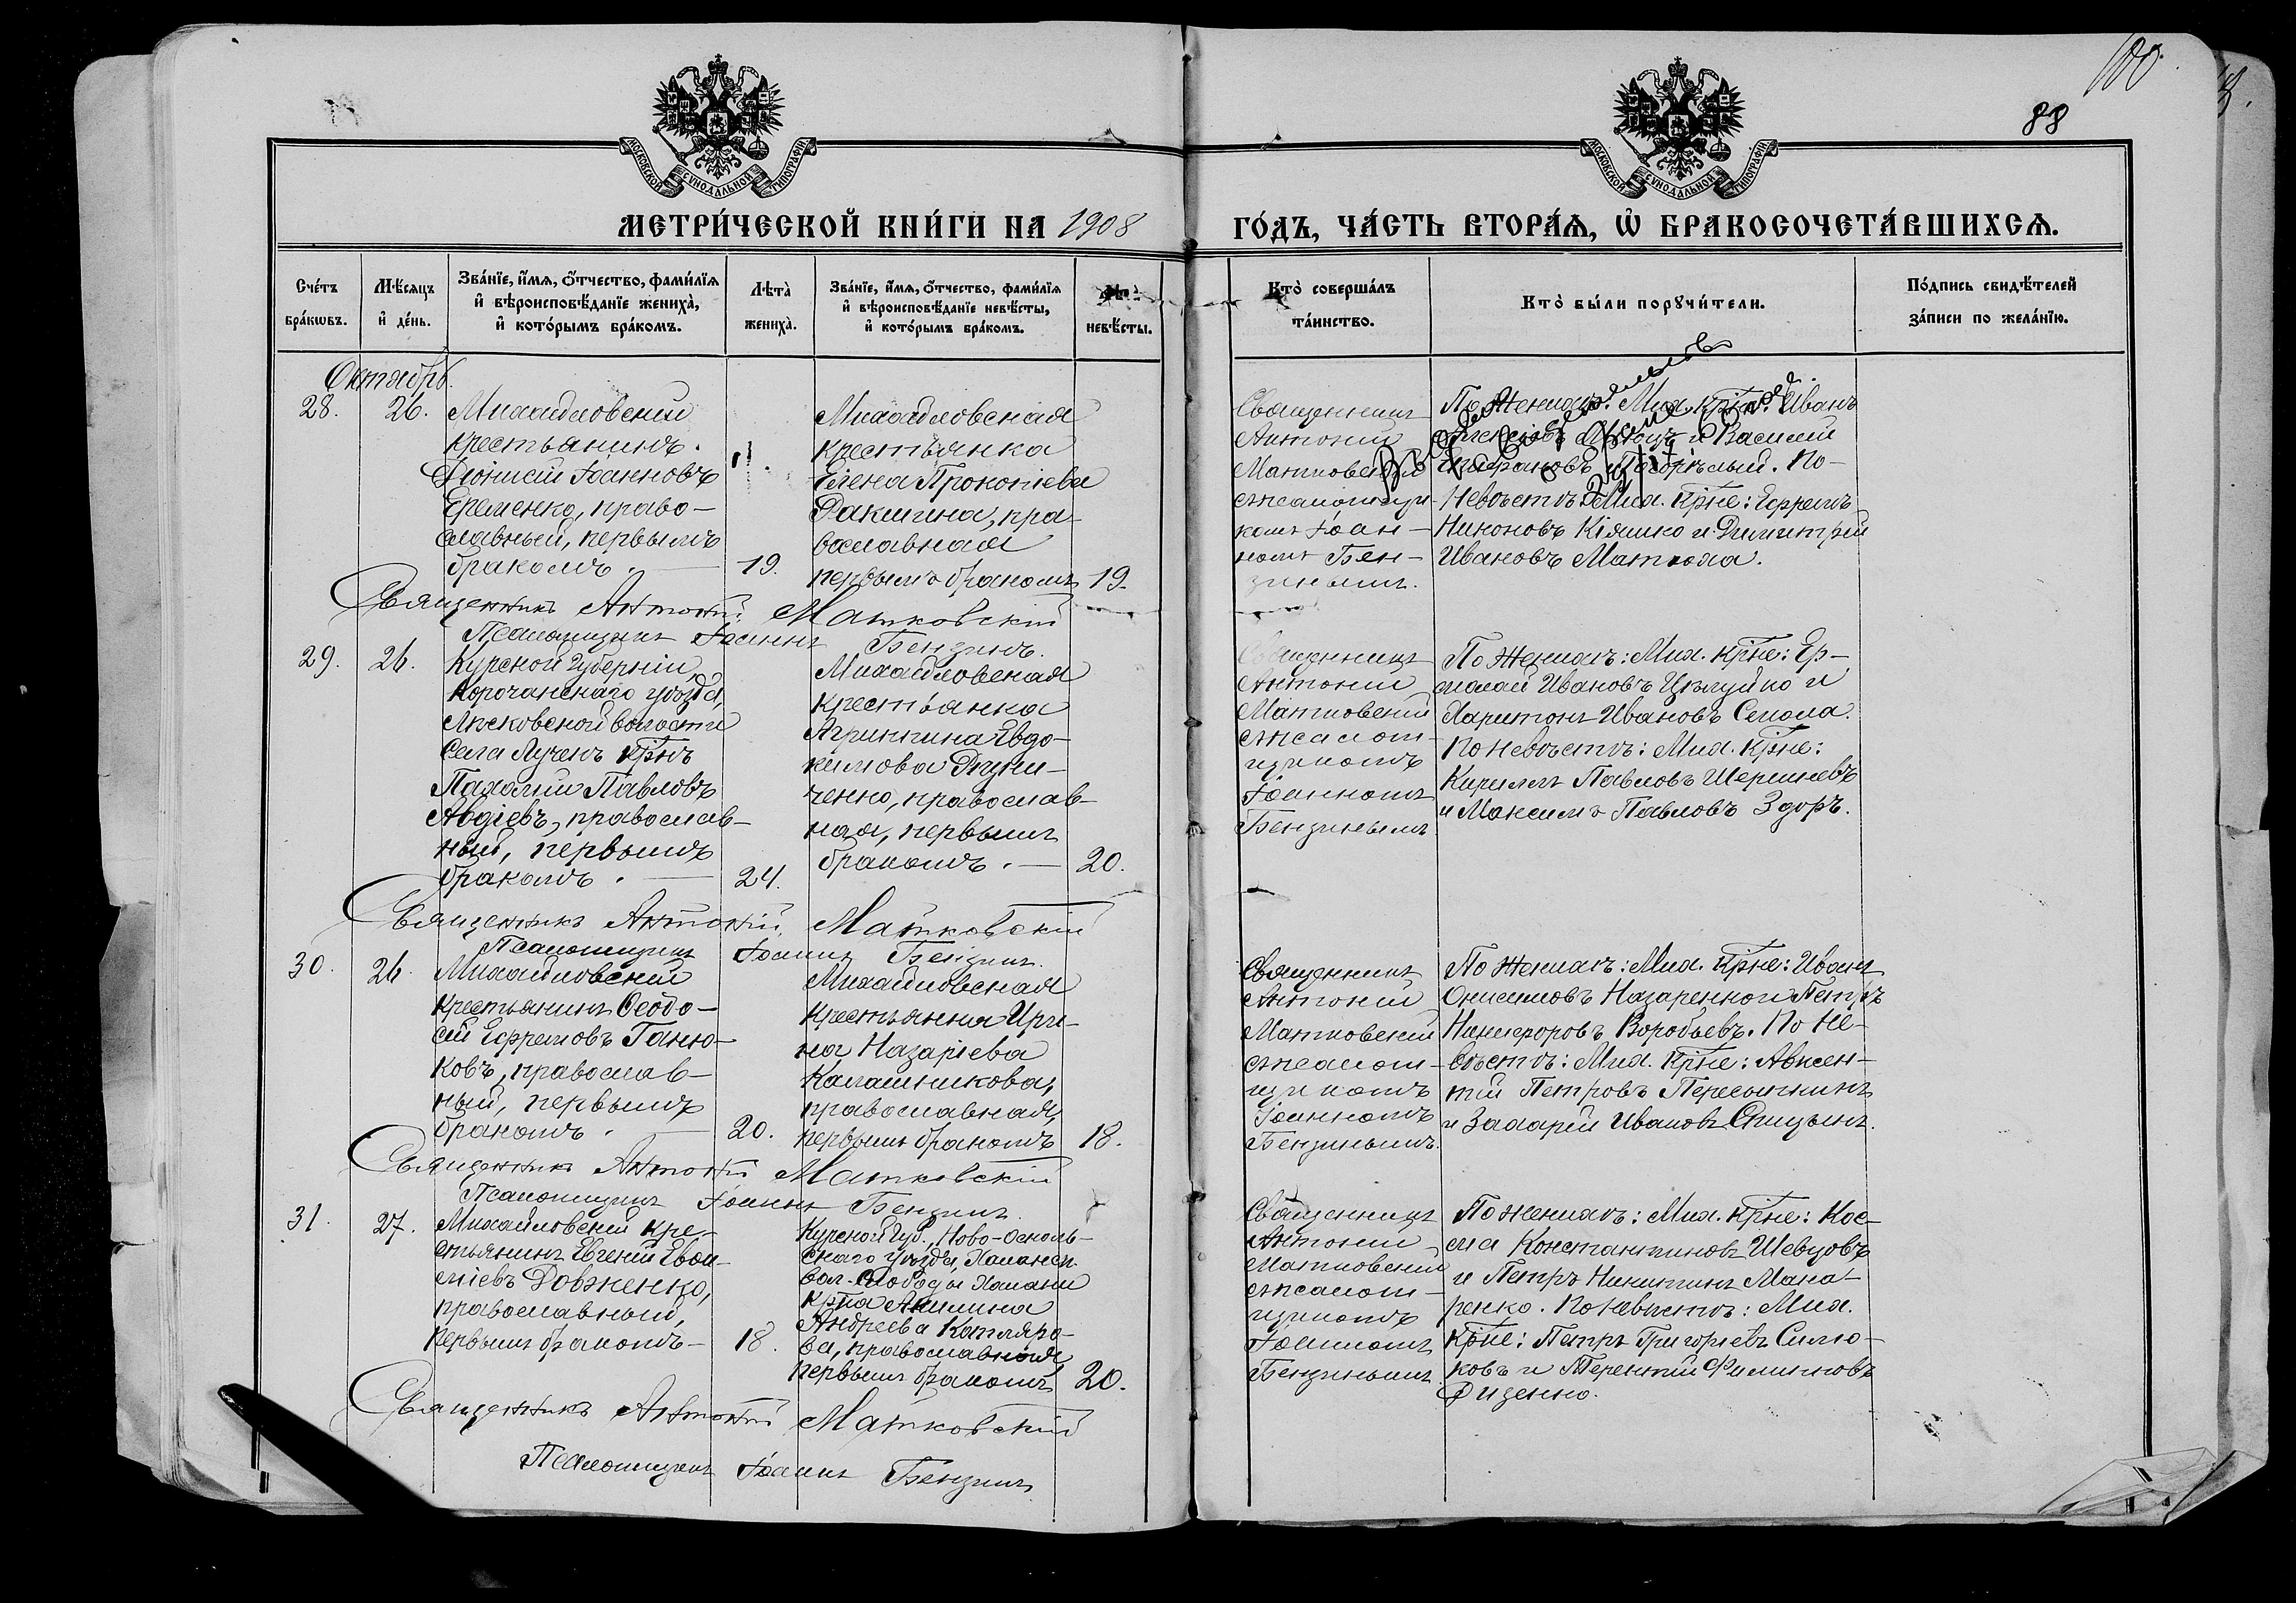 100.
88
МОСКОВСКОЙ СѴНОДАЛЬНОЙ ТИПОГРАФІИ
МОСКОВСКОЙ СѴНОДАЛЬНОЙ ТИПОГРАФІИ
МЕТРИ́ЧЕСКОЙ КНИ́ГИ НА 1908
ГО́ДЪ, ЧА́СТЬ ВТОРА́Ѧ, Ѽ БРАКОСОЧЕТА́ВШИХСѦ.
Сче́тъ бра́кѡвъ.
Мѣ́сѧцъ и҆ де́нь.
Зва́нїе, и҆́мѧ, ѻ҆́тчество, фами́лїѧ
и҆ вѣроисповѣ́данїе жениха̀,
и҆ кото́рымъ бра́комъ.
Лѣта̀ жениха̀.
Зва́нїе, и҆́мѧ, ѻ҆́тчество, фами́лїѧ
и҆ вѣроисповѣ́данїе невѣ́сты,
и҆ кото́рымъ бра́комъ.
невѣ́сты.
Кто̀ соверша́лъ
та́инство.
Кто̀ бы́ли порꙋчи́тели.
По́дпись свидѣ́телей
за́писи по жела́нїю.
Октябрь.
28.
26.
Михайловскій
крестьянинъ
Діонисій Іоанновъ
Еременко, право-
славный, первымъ
бракомъ.
19.
Михайловская
крестьянка
Елена Прокопіева
Ракшина, пра-
вославная
первымъ бракомъ
19.
Священникъ
Антоній
Матковскій
съ псаломщи-
комъ Іоан-
номъ Бен-
зинымъ.
По Женихѣ: Мих. крне: Иванъ
и Василій
По-
Невѣстѣ: Мих. крне: Ефремъ
Никоновъ Кіяшко и Димитрій
Ивановъ Маткова.
Священникъ Антоній Матковскій
Псаломщикъ Іоаннъ Бензинъ.
29.
26.
Курской губерніи,
Корочанскаго уѣзда,
волости
села крнъ
Пахомій Павловъ
Авдіевъ, православ-
ный, первымъ
бракомъ.
24.
Михайловская
крестьянка
Агрипина Евдо-
кимова
ченко, православ-
ная, первымъ
бракомъ.
20.
Священникъ
Антоній
Матковскій
съ псалом-
щикомъ
Іоанномъ
Бензинымъ
По Женихѣ: Мих. крне: Ер-
молай Ивановъ Цѣлуйко и
Харитонъ Ивановъ Секола.
По невѣстѣ: Мих. крне:
Кириллъ Павловъ Шершневъ
и Максимъ Павловъ Здоръ.
Священникъ Антоній Матковскій
Псаломщикъ Іоаннъ Бензинъ.
30.
26.
Михайловскій
крестьянинъ Ѳеодо-
сій Ефремовъ Ганю-
ковъ, православ-
ный, первымъ
бракомъ.
20.
Михайловская
крестьянка Ири-
на Назаріева
Калашникова,
православная,
первымъ бракомъ
18.
Священникъ
Антоній
Матковскій
съ псалом-
щикомъ
Іоанномъ
Бензинымъ.
По Женихѣ: Мих. крне: Иванъ
Онисимовъ Назаренко и Петръ
Никифоровъ Воробьевъ. По не-
вѣстѣ: Мих. крне: Авксен-
тій Петровъ Пересыпкинъ
и Захарій Ивановъ Спицынъ.
Священникъ Антоній Матковскій
Псаломщикъ Іоаннъ Бензинъ.
31.
27.
Михайловскій кре-
стьянинъ Евгеній
Довженко,
православный,
первымъ бракомъ-
18.
Курской губ., Ново-Осколь-
скаго уѣзда, Халанск.
вол. Слободы Халани
крка Акилина
Андреева Котляро-
ва, православная
первымъ бракомъ
20.
Священникъ
Антоній
Матковскій
съ псалом-
щикомъ
Іоанномъ
Бензинымъ
По женихѣ: Мих. крне: Кос-
ма Константиновъ Шевцовъ
и Петръ Никитинъ Мака-
ренко. По невѣстѣ: Мих.
крне: Петръ Григорьевъ Силю-
ковъ и Терентій Филипповъ
Диденко.
Священникъ Антоній Матковскій
Псаломщикъ Іоаннъ Бензинъ